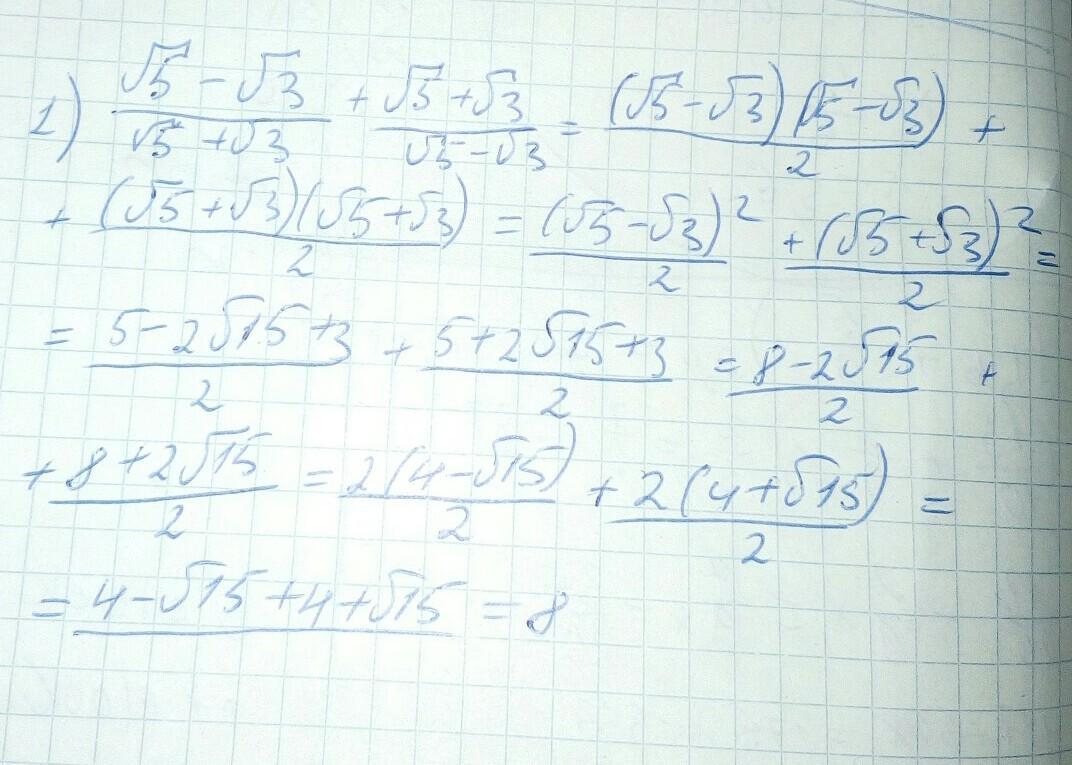 1) (√5 - √3)/(√5 + √3) + (√5 + √3)/(√5 - √3) = ((√5 - √3)(√5 - √3))/2 +
+ ((√5 + √3)(√5 + √3))/2 = (√5 - √3)²/2 + (√5 + √3)²/2 =
= (5 - 2√15 + 3)/2 + (5 + 2√15 + 3)/2 = (8 - 2√15)/2 +
+ (8 + 2√15)/2 = 2(4 - √15)/2 + 2(4 + √15)/2 =
= 4 - √15 + 4 + √15 = 8